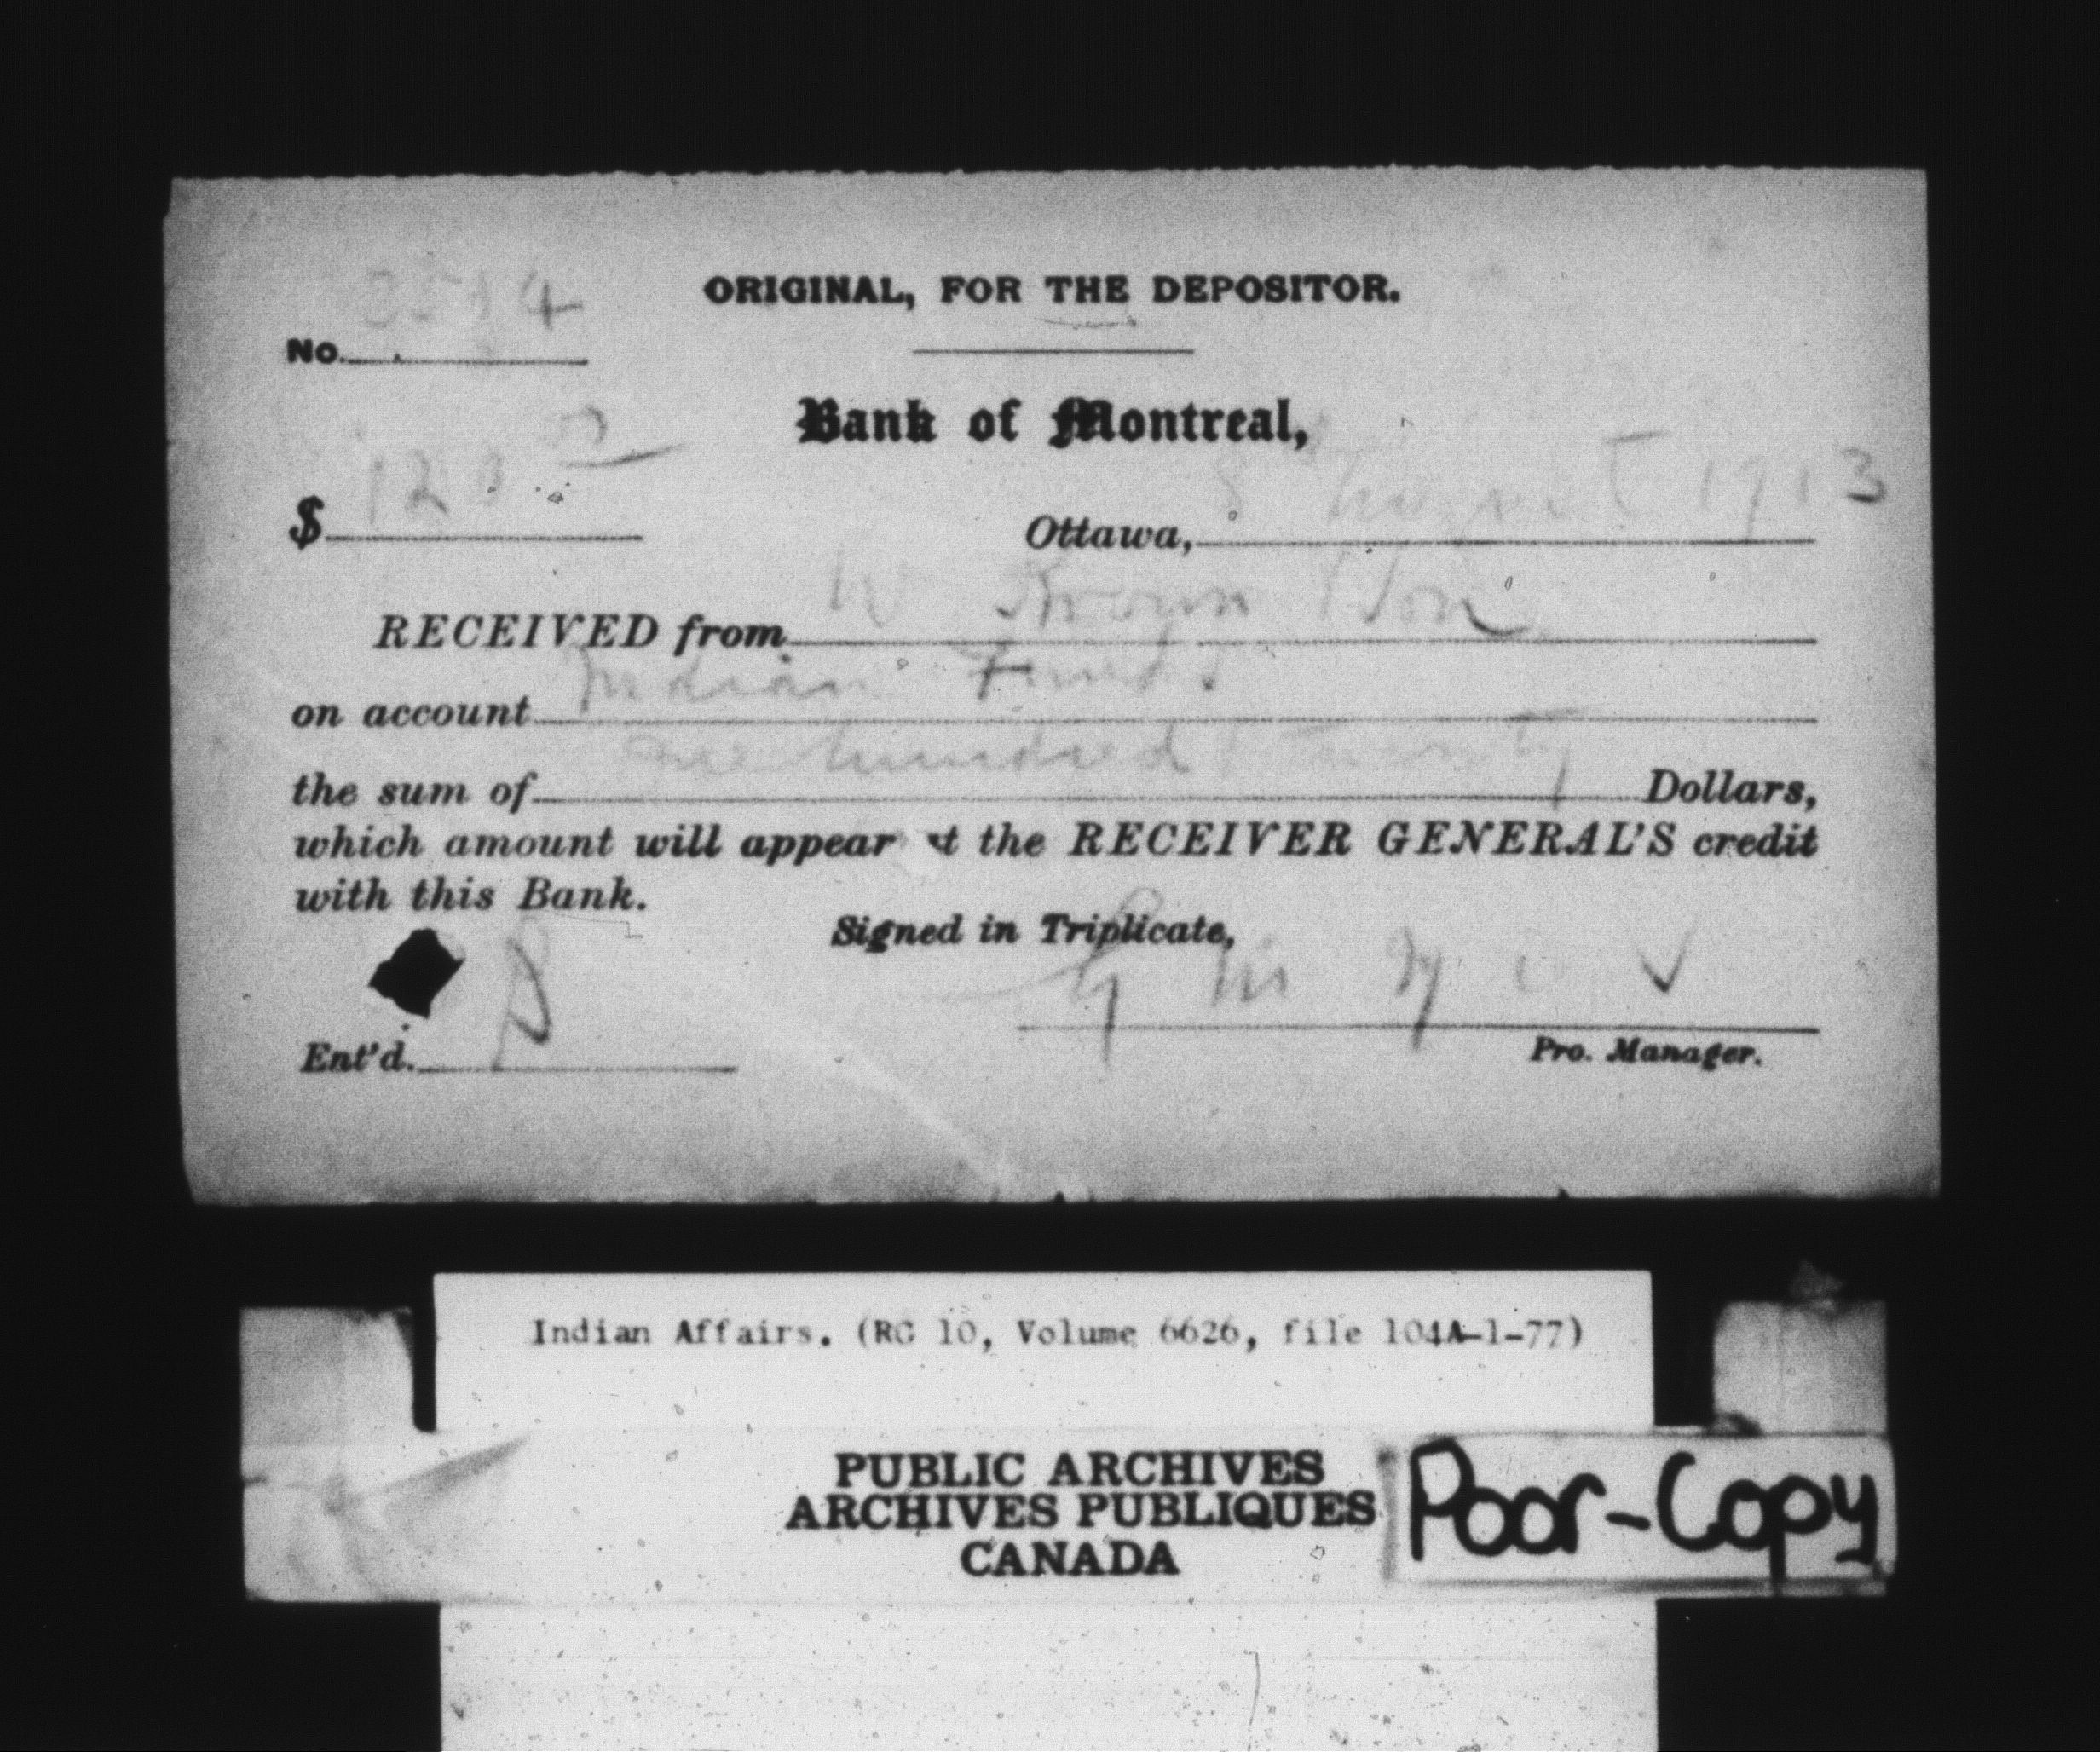 ORIGINAL, FOR THE DEPOSITOR.
No. 4
Bank of Montreal,
$ 120
Ottawa, 8 August 1913
RECEIVED from W Brown
on account Indian Funds
the sum of one hundred Twenty Dollars,
which amount will appear at the RECEIVER GENERAL'S credit
with this Bank.
Signed in Triplicate,
Ent'd.
Pro. Manager.
Indian Affairs. (RG 10, Volume 6626, file 104A-1-77)
PUBLIC ARCHIVES
ARCHIVES PUBLIQUES
CANADA
Poor-Copy